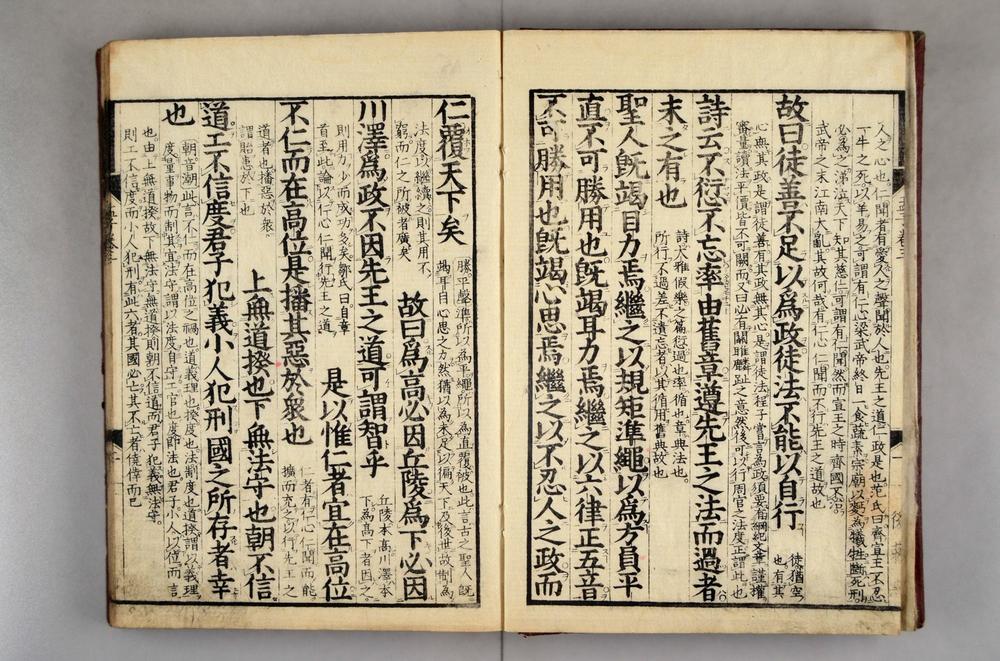 人之心也仁聞者有愛人之聲聞於人也先王之道仁政是也范氏曰齊宣王不忍
一牛之死以羊易之可謂有仁心梁武帝終日一食蔬素宗廟以麪為犧牲斷死刑
必為之涕泣天下知其慈仁可謂有仁聞然而宣王之時齊國不治
武帝之末江南大亂其故何哉有仁心仁聞而不行先王之道故也
故曰徒善不足以爲政徒法不能以自行
徒猶空
也有其
心無其政是謂徒善有其政無其心是謂徒法程子嘗言為政須要有綱紀文章謹權
審量讀法平價皆不可闕而又曰必有關雎麟趾之意然後可以行周官之法度正謂此也
詩云不愆不忘率由舊章遵先王之法而過者
未之有也
詩大雅假樂之篇愆過也率循也章典法也
所行不過差不遺忘者以其循用舊典故也
聖人既竭目力焉繼之以規矩準繩以爲方員平
直不可勝用也既竭耳力焉繼之以六律正五音
不可勝用也既竭心思焉繼之以不忍人之政而
仁覆天下矣
勝平聲準所以為平繩所以為直覆被也此言古之聖人既
竭耳目心思之力然猶以為未足以徧天下及後世故制為
法度以繼續之則其用不
窮而仁之所被者廣矣
故曰爲高必因丘陵爲下必因
川澤爲政不因先王之道可謂智乎
丘陵本高川澤本
下為高下者因之
則用力少而成功多矣鄒氏曰自章
首至此論以仁心仁聞行先王之道
是以惟仁者宜在高位
不仁而在高位是播其惡於衆也
仁者有仁心仁聞而能
擴而充之以行先王之
道者也播惡於衆
謂貽患於下也
上無道揆也下無法守也朝不信
道工不信度君子犯義小人犯刑國之所存者幸
也
朝音潮此言不仁而在高位之禍也道義理也揆度也法制度也道揆謂以義理
度量事物而制其宜法守謂以法度自守工官也度即法也君子小人以位而言
也由上無道揆故下無法守無道揆則朝不信道而君子犯義無法守
則工不信度而小人犯刑有此六者其國必亡其不亡者僥倖而已